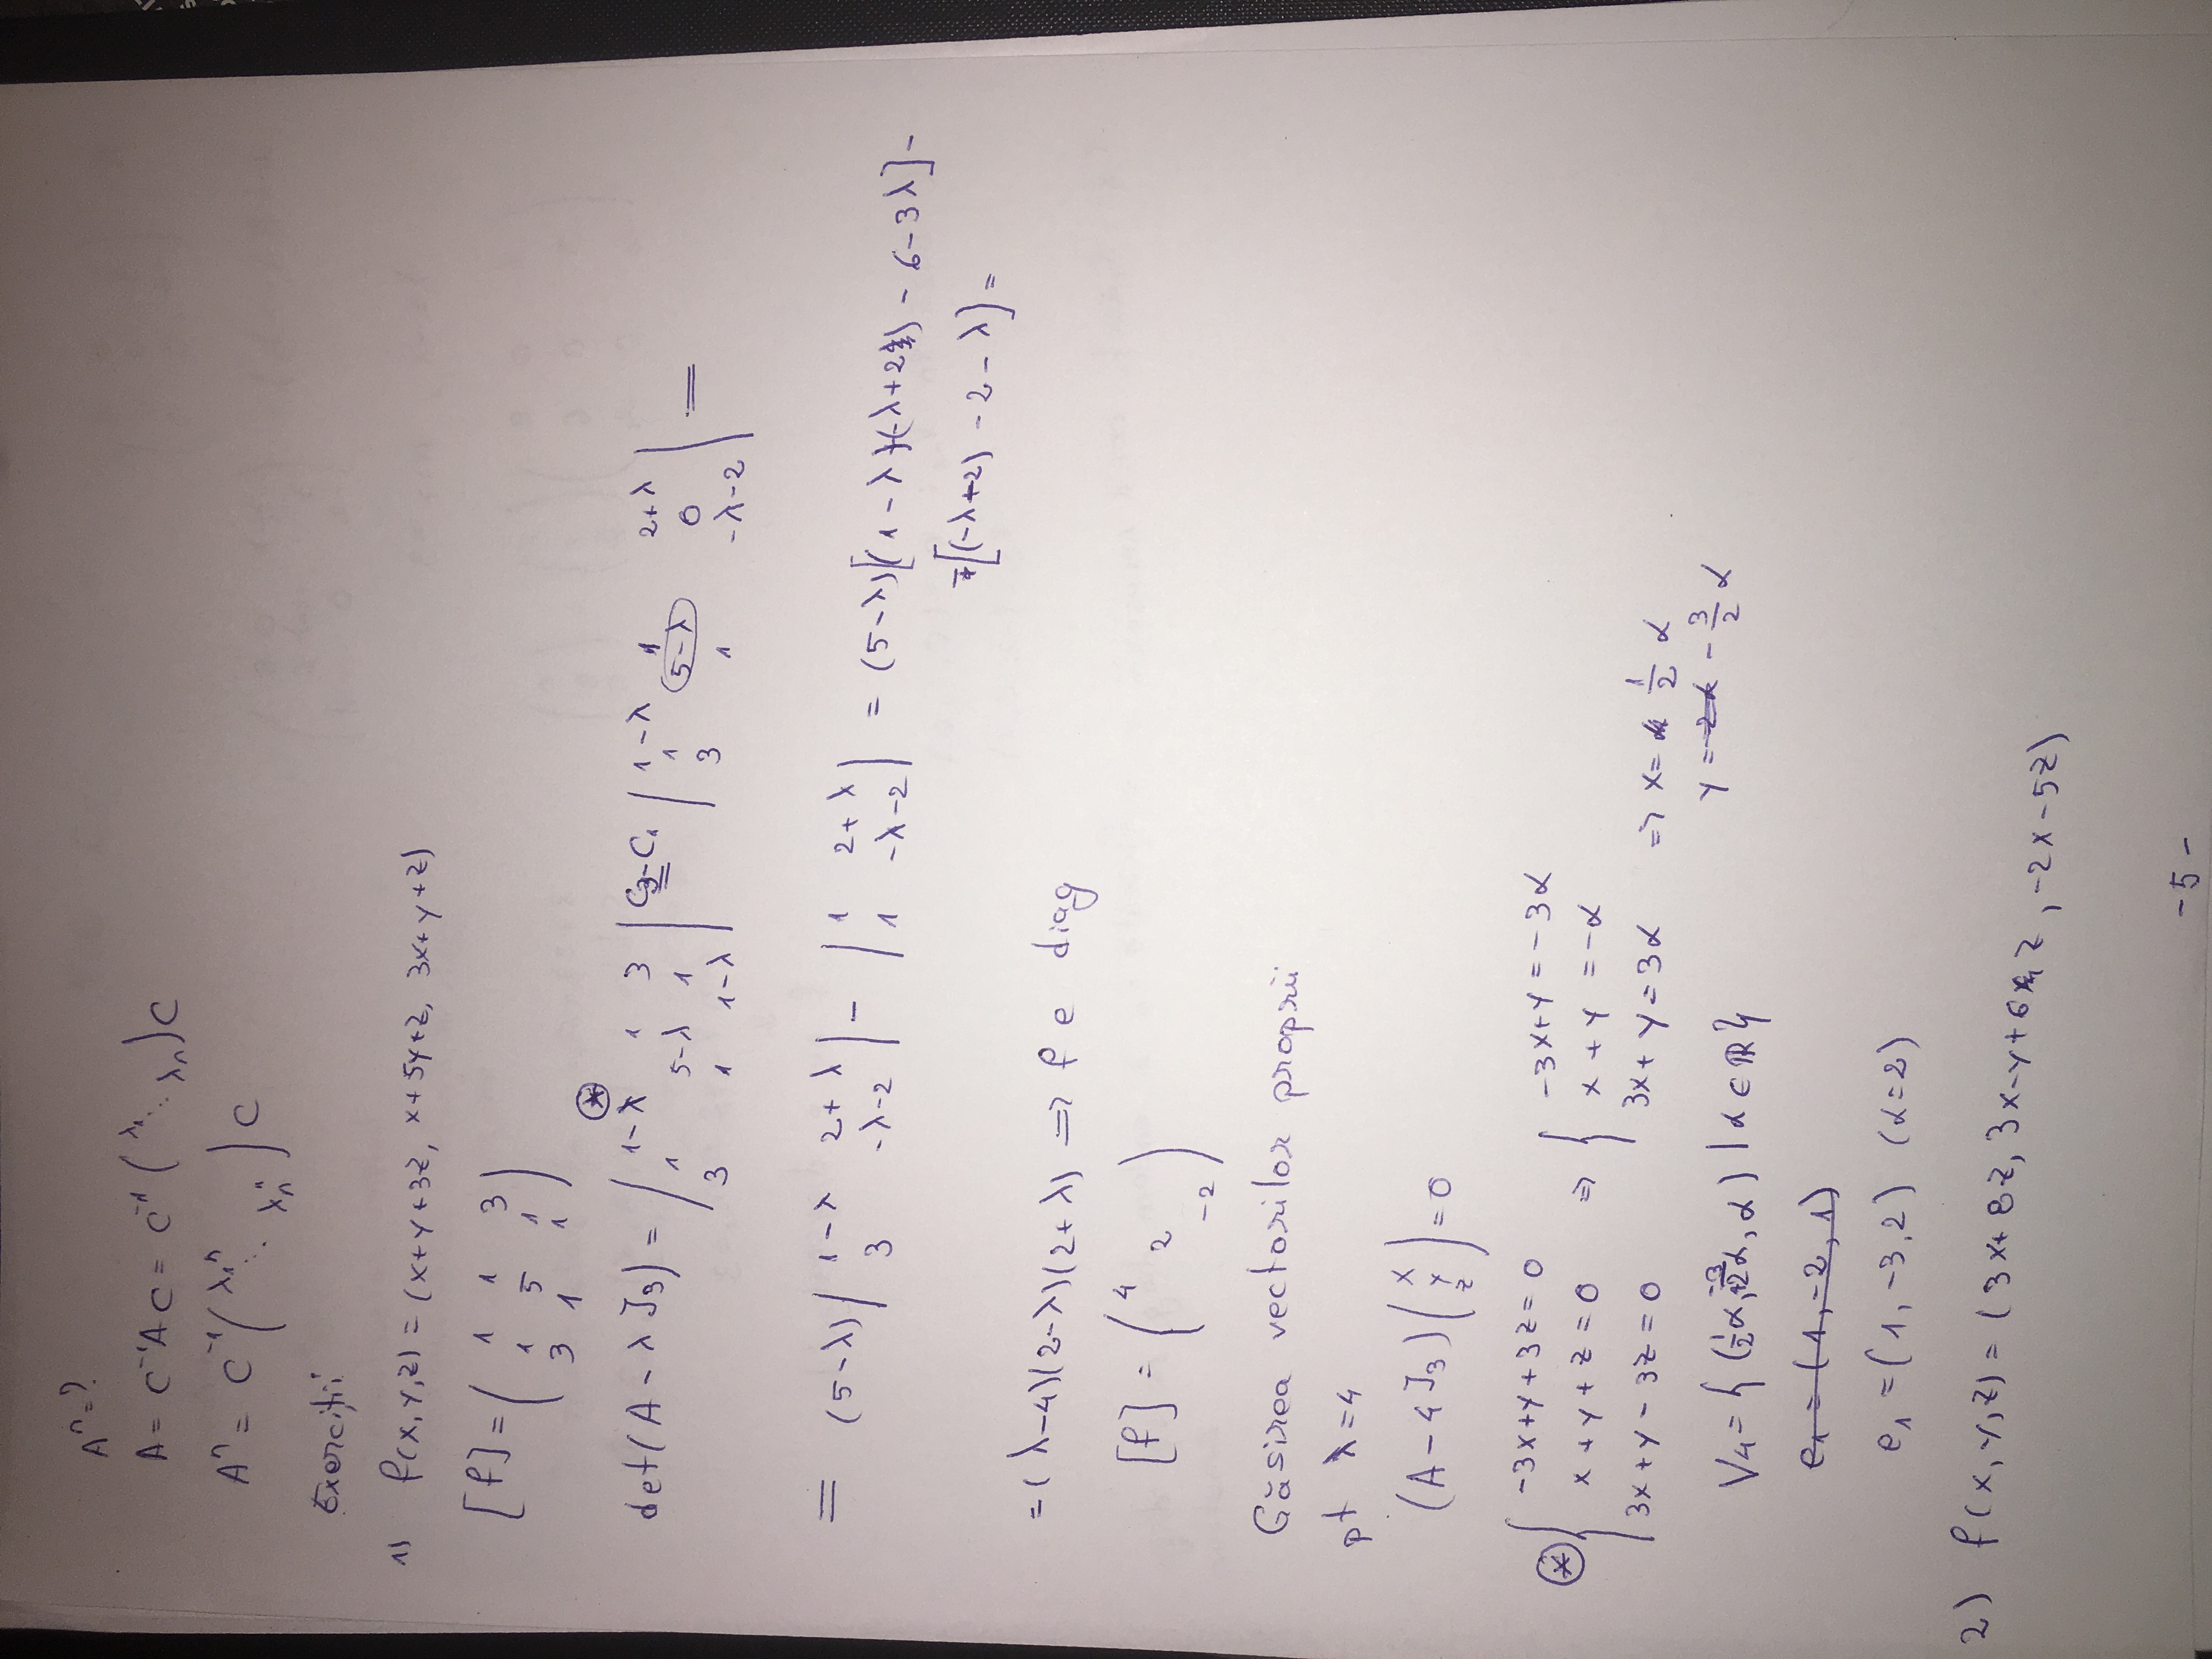 Aⁿ = ?
A = C⁻¹AC = C⁻¹ ( λ₁ ⋱ λₙ ) C
Aⁿ = C⁻¹ ( λ₁ⁿ ⋱ λₙⁿ ) C
Exerciții
1) f(x,y,z) = (x+y+3z, x+5y+z, 3x+y+z)
[f] = ( 1 1 3
1 5 1
3 1 1 )
⊛
det(A - λI₃) = | 1-λ 1 3 | C₃-C₁ | 1-λ 1 2+λ |
1 5-λ 1 = 1 5-λ 0 =
3 1 1-λ 3 1 -λ-2
= (5-λ) | 1-λ 2+λ | - | 1 2+λ | = (5-λ)[(1-λ)(-λ+2) - 6-3λ] -
3 -λ-2 1 -λ-2
-[(-λ+2) - 2 - λ] =
= (λ-4)(2-λ)(2+λ) => f e diag
[f] = ( 4
2
-2 )
Găsirea vectorilor proprii
pt λ=4
(A - 4I₃) ( x
y
z ) = 0
⊛ { -3x+y+3z = 0 => { -3x+y = -3α
x+y+z = 0 x+y = -α
3x+y-3z = 0 3x+y = 3α => x = 1/2 α
y = 2α - 3/2 α
V₄ = { (1/2 α, -3/2 α, α) | α ∈ ℝ }
e₁ = (1, -2, 1)
e₁ = (1, -3, 2) (α=2)
2) f(x,y,z) = (3x+8z, 3x-y+6z, -2x-5z)
-5-